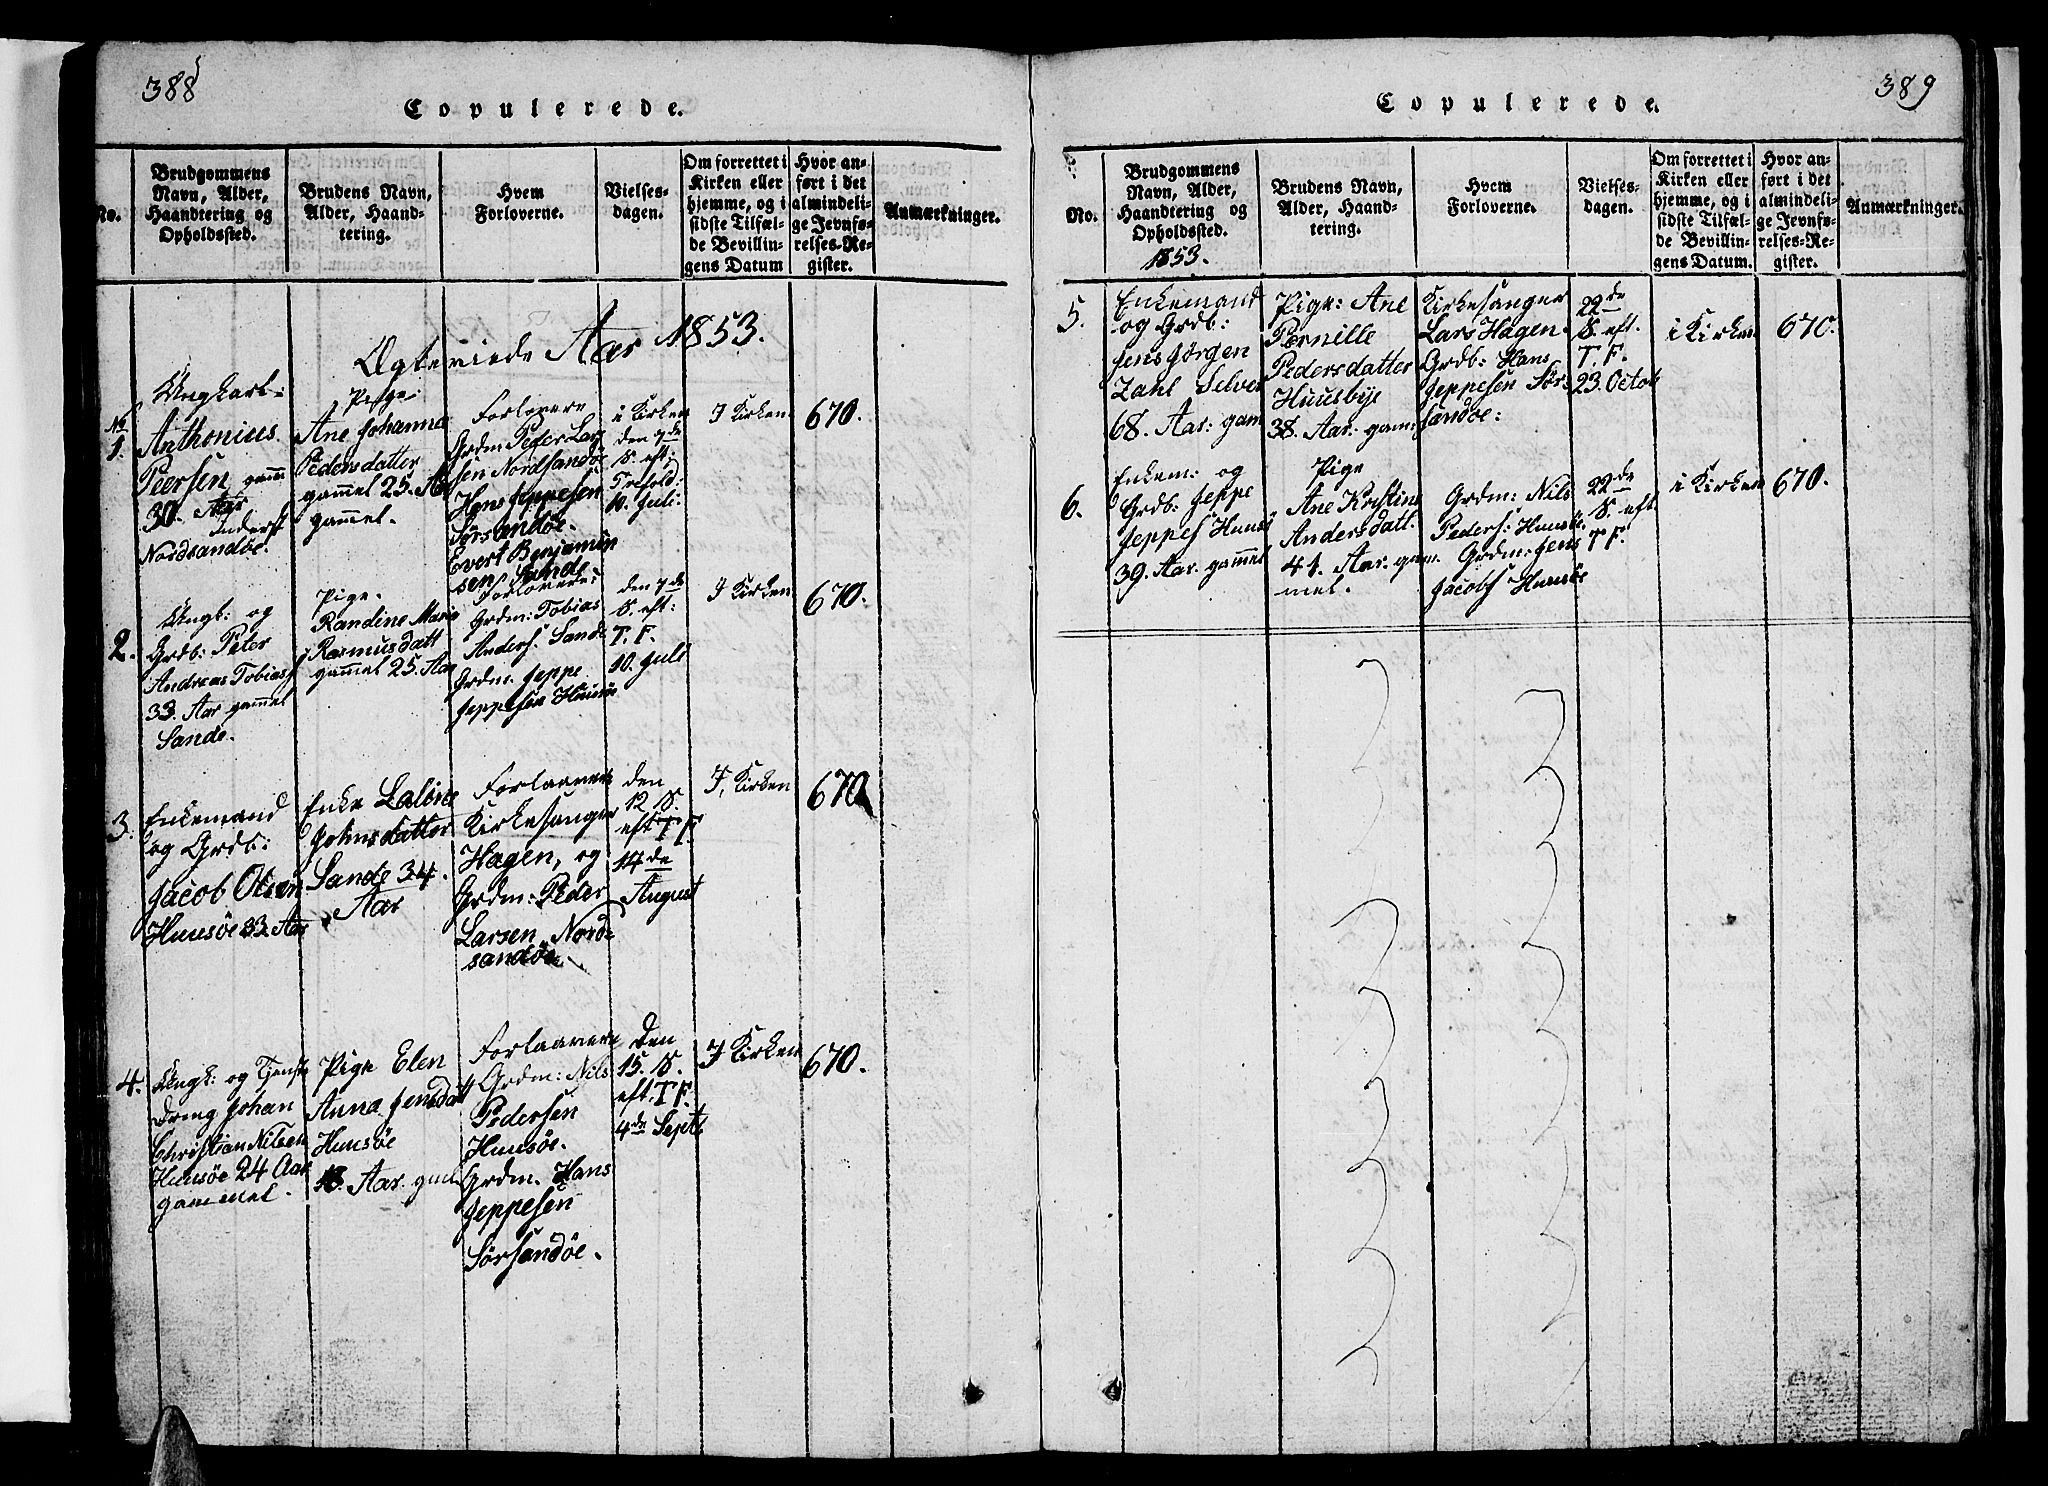 388
Copulerede.
No.
Brudgommens
Navn, Alder,
Haandtering og
Opholdssted.
Brudens Navn,
Alder, Haand-
tering.
Hvem
Forloverne.
Vielses-
dagen.
Om forrettet i
Kirken eller
hjemme, og i
sidste Tilfæl-
de Bevillin-
gens Datum
Hvor an-
ført i det
almindeli-
ge Jevnfø-
relses-Re-
gister.
Anmærkninger.
Ægteviede Aar 1853.
No
1.
Ungkarl:
Anthonius
Peersen gamm
30. Aar
Inderst
Nordsandøe.
Pige:
Ane Johanna
Pedersdatter
gammel 25. Aar
gammel.
Forlovere
Grdm: Peder Lar
sen Nordsandøe
Hans Jeppesen
Sørsandøe.
Evert Benjamin
sen, Sande
i Kirken
den 7de
S. eft:
Trefold:
10. Juli:
I Kirken
670.
2.
Ungk: og
Grdb: Peter
Andreas Tobiass
33. Aar gammel
Sande.
Pige.
Randine Marie
Rasmusdatt
gammel 25. Aar
Forlovere:
Grdm: Tobias
Anders: Sande
Grdm. Jeppe
Jeppesen Huusøe
den 7de
S. eft:
T. F.
10. Juli
I Kirken
670.
3.
Enkemand
og Grdb:
Jacob Olsen
Huusøe 33. Aar
Enke Lalørie
Johnsdatter
Sande 34.
Aar
Forlaavere
Kirkesanger
Hagen, og
Grdm: Peder
Larsen, Nord-
sandøe.
den
12 S.
eft T F.
14de
August
I, Kirken
670
4.
Ungk: og Tjenste
dreng Johan
Christian Nilsen
Huusøe 24 Aar
gammel.
Pige Elen
Anna Jensdatt
Huusøe
Aar. gml.
Forlaavere
Grdm: Nils
Pedersen
Huusøe.
Grdm. Hans
Jeppesen
Sørsandøe.
Den
15. S.
eft. T F.
4de Septb
I Kirken
670.
389
Copulerede.
No.
Brudgommens
Navn, Alder,
Haandtering og
Opholdssted.
1853.
Brudens Navn,
Alder, Haand-
tering.
Hvem
Forloverne.
Vielses-
dagen.
Om forrettet i
Kirken eller
hjemme, og i
sidste Tilfæl-
de Bevillin-
gens Datum.
Hvor an-
ført i det
almindeli-
ge Jevnfø-
relses-Re-
gister.
Anmærkninger.
5.
Enkemand
og Grdb:
Jens Jørgen
Zahl Selvær
68. Aar: gam
Pige: Ane
Pernille
Pedersdatter
Huusbye
38. Aar: gam:
Kirkesanger
Lars Hagen.
Grdb: Hans
Jeppesen Sør-
sandøe:
22de
S. eft.
T. F.
23. Octob
i Kirken
670.
6.
Enkem: og
Grdb: Jeppe
Jeppes Huusø
39. Aar. gammel
Pige
Ane Kristine
Andersdatt.
41. Aar. gam
mel.
Grdm: Nils
Peders: Huusøe.
Grdm: Jens
Jacobs Huusøe
22de
S. eft.
T F.
i Kirken
670.